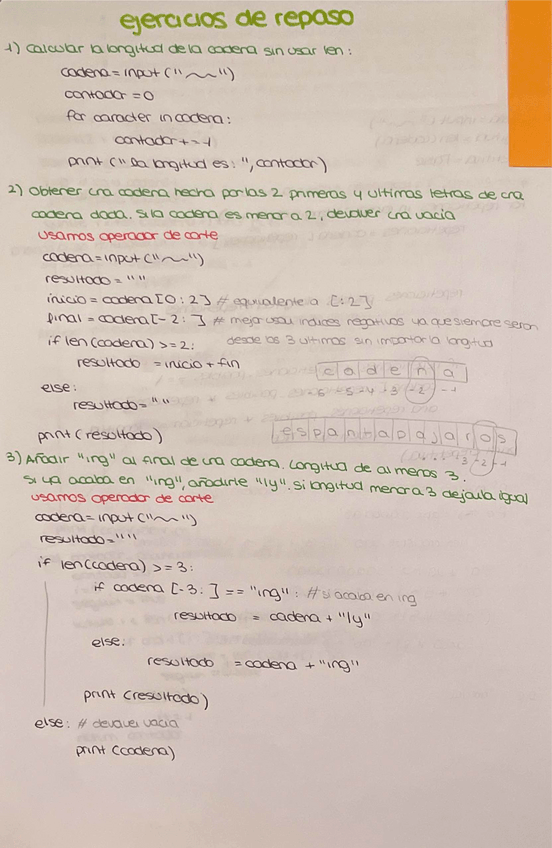 ejercicios de repaso
1) Calcular la longitud de la cadena sin usar len:
cadena = input ("~~")
contador = 0
for caracter in cadena:
contador += 1
print ("La longitud es: ", contador)
2) Obtener una cadena hecha por las 2 primeras y ultimas letras de una
cadena dada. Si la cadena es menor a 2, devolver una vacía
usamos operador de corte
cadena = input ("~~")
resultado = " "
inicio = cadena [0 : 2] # equivalente a [: 2]
final = cadena [-2 : ] # mejor usar indices negativos ya que siempre seran
if len (cadena) >= 2: desde los 3 ultimos sin importar la longitud
resultado = inicio + fin
c a d e n a
-6 -5 -4 -3 -2 -1
else:
resultado = " "
e s p a n t a p a j a r o s
print (resultado)
-3 -2 -1
3) Añadir "ing" al final de una cadena. Longitud de al menos 3.
Si ya acaba en "ing", añadirle "ly". si longitud menor a 3 dejarla igual
usamos operador de corte
cadena = input ("~~")
resultado = " "
if len (cadena) >= 3:
if cadena [-3 : ] == "ing" : # si acaba en ing
resultado = cadena + "ly"
else:
resultado = cadena + "ing"
print (resultado)
else: # devolver vacia
print (cadena)